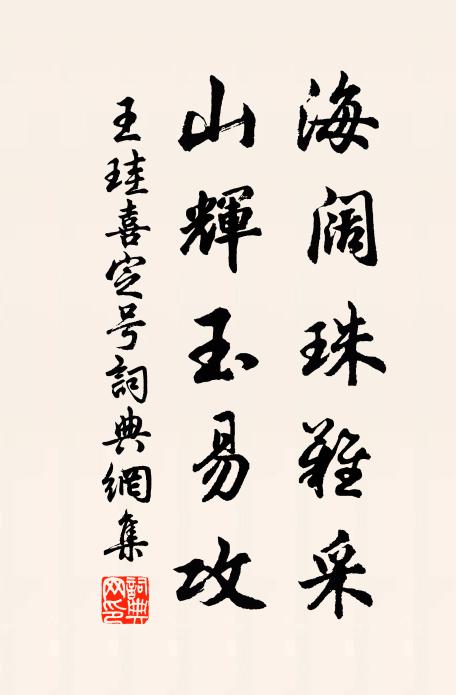 海阔珠難采
山輝玉易攻
王珪喜定号詞典網集
詞典网印